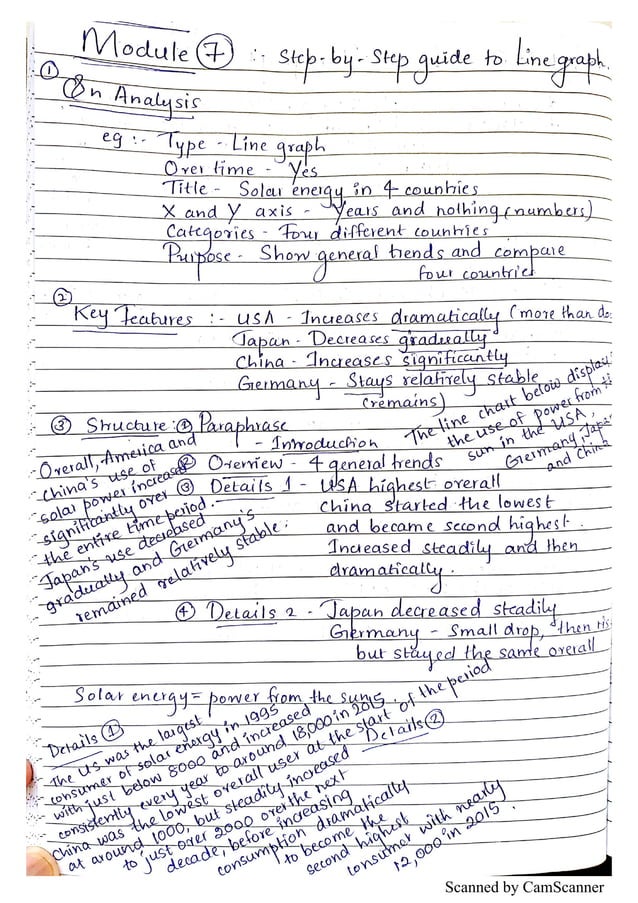 Module 7 :- Step-by-Step guide to Line graph.
① Qn Analysis
eg :- Type - Line graph
Over time - Yes
Title - Solar energy in 4 countries
X and Y axis - Years and nothing (numbers)
Categories - Four different countries
Purpose - Show general trends and compare
four countries
② Key Features :- USA - Increases dramatically (more than do
Japan - Decreases gradually
China - Increases significantly
Germany - Stays relatively stable
(remains)
③ Structure: ① Paraphrase
- Introduction
The line chart below display
the use of power from
sun in the USA,
Germany, Japan
and China
② Overview - 4 general trends
Overall, America and
China's use of
solar power increased
significantly over
the entire time period.
Japan's use decreased
gradually and Germany's
remained relatively stable.
③ Details 1 - USA highest overall
China started the lowest
and became second highest.
Increased steadily and then
dramatically.
④ Details 2 - Japan decreased steadily
Germany - Small drop, then ris
but stayed the same overall
Solar energy = power from the sun
Details ①
The US was the largest
consumer of solar energy in 1995
with just below 8000 and increased
consistently every year to around 18,000 in 2015.
China was the lowest overall user at the start of the period
at around 1000, but steadily increased
to just over 2000 over the next
decade, before increasing
consumption dramatically
to become the
second highest
consumer with nearly
12,000 in 2015.
Details ②
Scanned by CamScanner